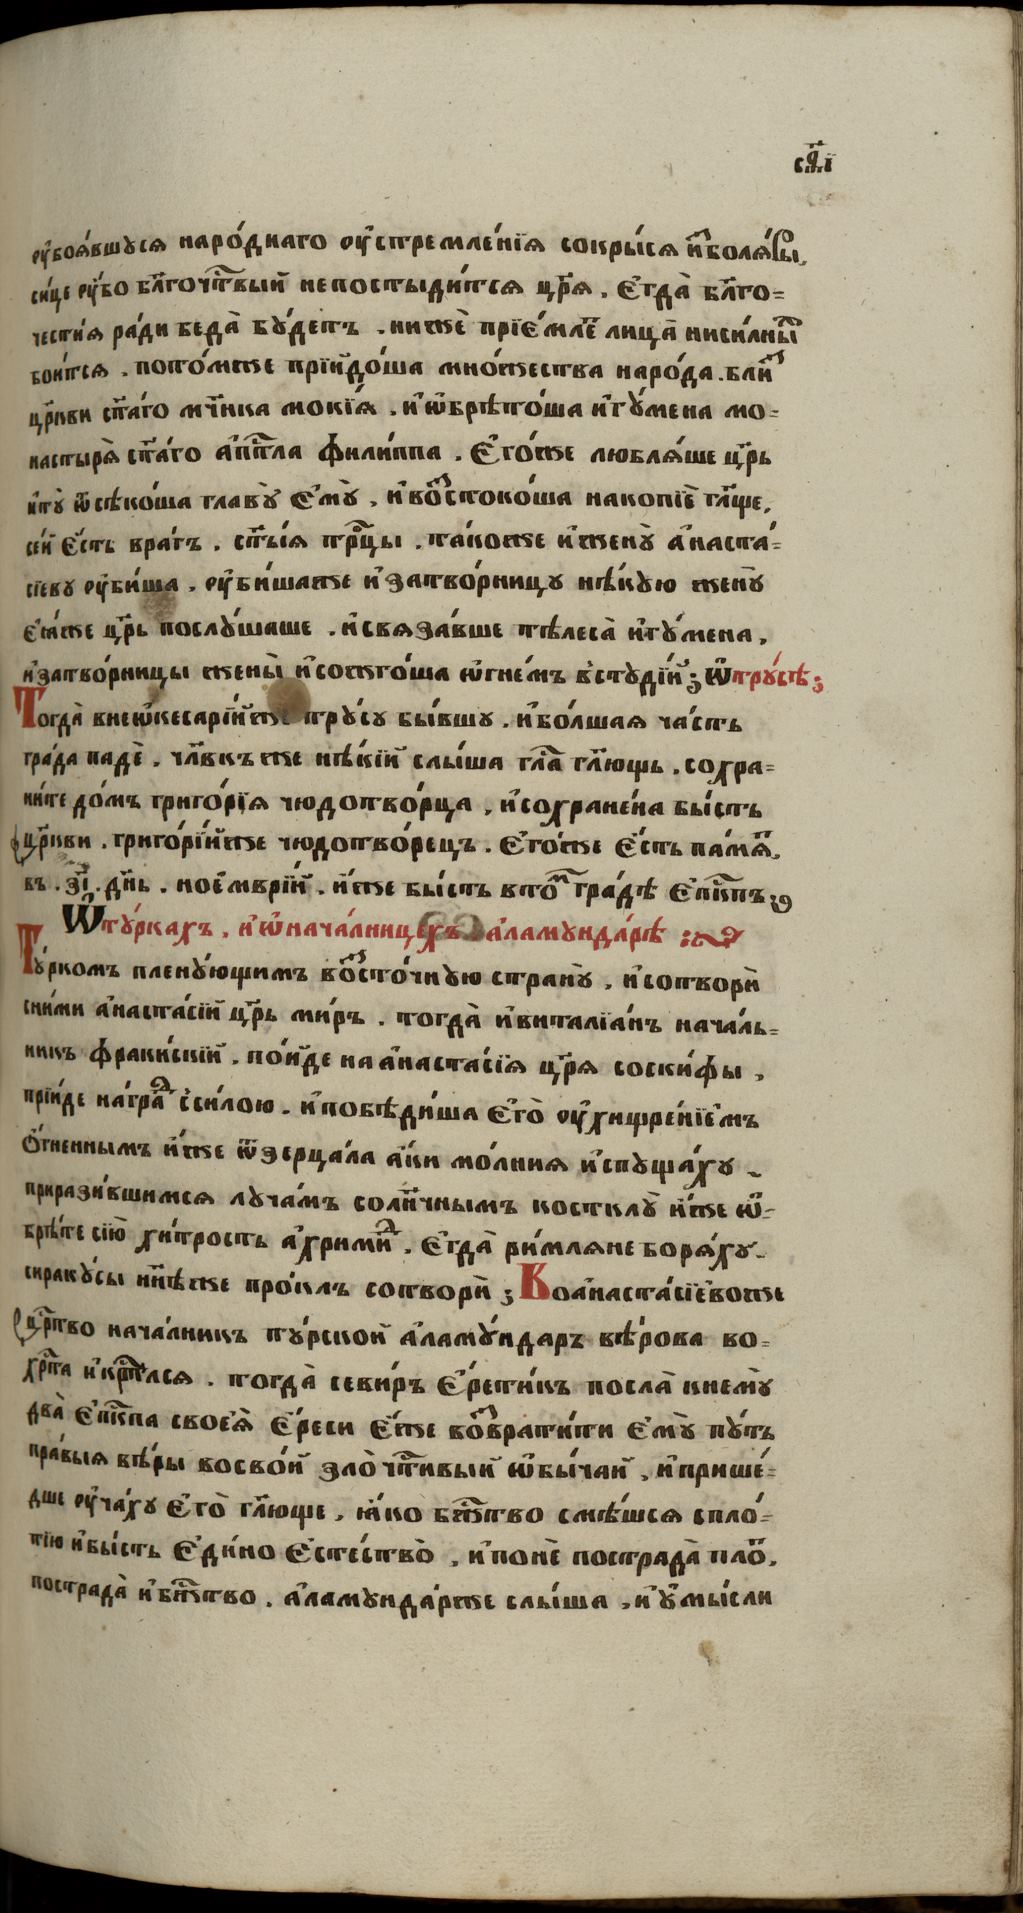 с҃аі
оу҆боѧ́вшусѧ наро́днаго оу҆стремле́нїѧ сокры́сѧ и҆болѧ́ры,
си́це оу҆́бо бл҃гоч҇твый непостыди́тсѧ цр҃ѧ. є҆гда̀ бл҃го=
чести́ѧ ра́ди беда̀ бу́детъ. нижѐ прїе́млє҇ лица̀ нисилны҇
боитсѧ. пото́мже прїидо́ша мно́жества наро́да. бли҇
цр҃кви ст҃а́го мч҃нка мокі́ѧ. и҆ѡ҆брѣто́ша и҆гу́мена мо=
настырѧ̀ ст҃а́го а҆п҇тла фили́ппа. є҆го́же люблѧ́ше цр҃ь
и҆ту̀ ѿсѣко́ша главу̀ є҆му̀. и҆во҇стоко́ша накопїѐ гл҃ще,
се́й є҆́сть вра́гъ. ст҃ы́ѧ тр҇цы. та́коже и҆жену̀ а҆наста́=
сїеву оу҆би́ша. оу҆би́шаже и҆затво́рницу нѣ́кую жену̀
є҆ю́же цр҃ь послу́шаше. и҆свѧза́вше тѣлеса̀ и҆гу́мена,
и҆затво́рницы жены̀ и҆сожго́ша ѡ҆гне́мъ в̾студі́й; ѡ҆тру́сѣ;
Тогда̀ внеѡ҆кесарі́йже тру́су бы́вшу. и҆бо́лшаѧ ча́сть
гра́да падѐ. чл҃вкъ же нѣ́кїй слы́ша гл҇а гл҃ющь. сохра=
ни́те до́мъ григо́рїѧ чюдотво́рца, и҆сохране́на бы́сть
цр҃кви. григо́рі́йже чюдотво́рецъ. є҆го́же є҆́сть па́мѧ҇.
въ. з҃і. дн҃ь. ное́мврі́й. и҆́же бы́сть вто҇ гра́дѣ є҆п҇кпъ;
Ѡ҆ту́ркахъ, и҆ѡ҆нача́лницехъ а҆ламунда́рѣ
Ту́ркомъ плену́ющимъ во҇сто́чную страну̀, и҆сотворѝ
сни́ми а҆наста́сїй цр҃ь ми́ръ. тогда̀ и҆виталїа́нъ нача́ль=
никъ фраки́скїй. по́йде на а҆наста́сїѧ цр҃ѧ соски́фы,
прїи́де награ҇д с̾си́лою. и҆побѣди́ша є҆го̀ оу҆хищре́нїемъ
ѻ҆́гненнымъ и҆́же ѿзерца́ла а҆́ки мо́лниѧ и҆спуща́ху
прирази́вшимсѧ луча́мъ солн҇чнымъ костклу̀ и҆́же ѡ҆=
брѣ́те сїю̀ хи́трость а҆хрими҇д. є҆гда̀ ри́млѧне борѧ́ху
сираку́сы нн҃ѣже про́клъ сотворѝ; Воа҆наста́сїе́воже
цр҇тво нача́лникъ ту́рской а҆ламу́ндаръ вѣ́рова во=
хр҇та и҆кр҇тилсѧ. тогда̀ севи́ръ є҆рети́къ посла̀ кнему̀
два̀ є҆п҇кпа своеѧ̀ є҆́реси є҆́же во҇врати́ти є҆му̀ пу́ть
пра́выѧ вѣ́ры восво́й злоч҇ти́вый ѡ҆бы́чай, и҆прише́=
дше оу҆ча́ху є҆го̀ гл҃юще, ꙗ҆́ко бж҇тво смѣ́шсѧ спло́=
тїю и҆бы́сть є҆ди́но є҆стество̀, и҆понѐ пострада̀ пло҇,
пострада̀ и҆бж҇тво. а҆ламунда́рже слы́ша, и҆у҆мы́сли